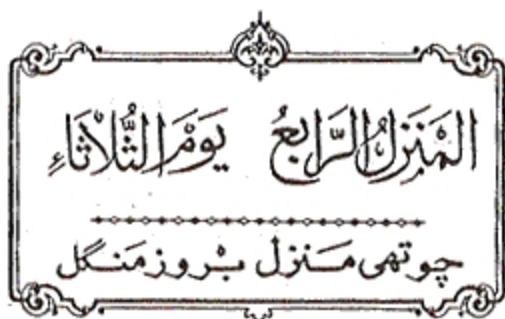 المَنزِلُ الرَّابِعُ يَوْمَ الثُّلَاثَاءِ
چوتھی مَنزل بروز مَنگل